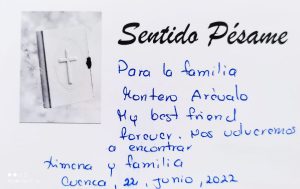 Sentido Pésame
Para la familia
Montero Arévalo
My best friend
forever. Nos volveremos
a encontrar
Ximena y familia
Cuenca, 22, junio, 2022